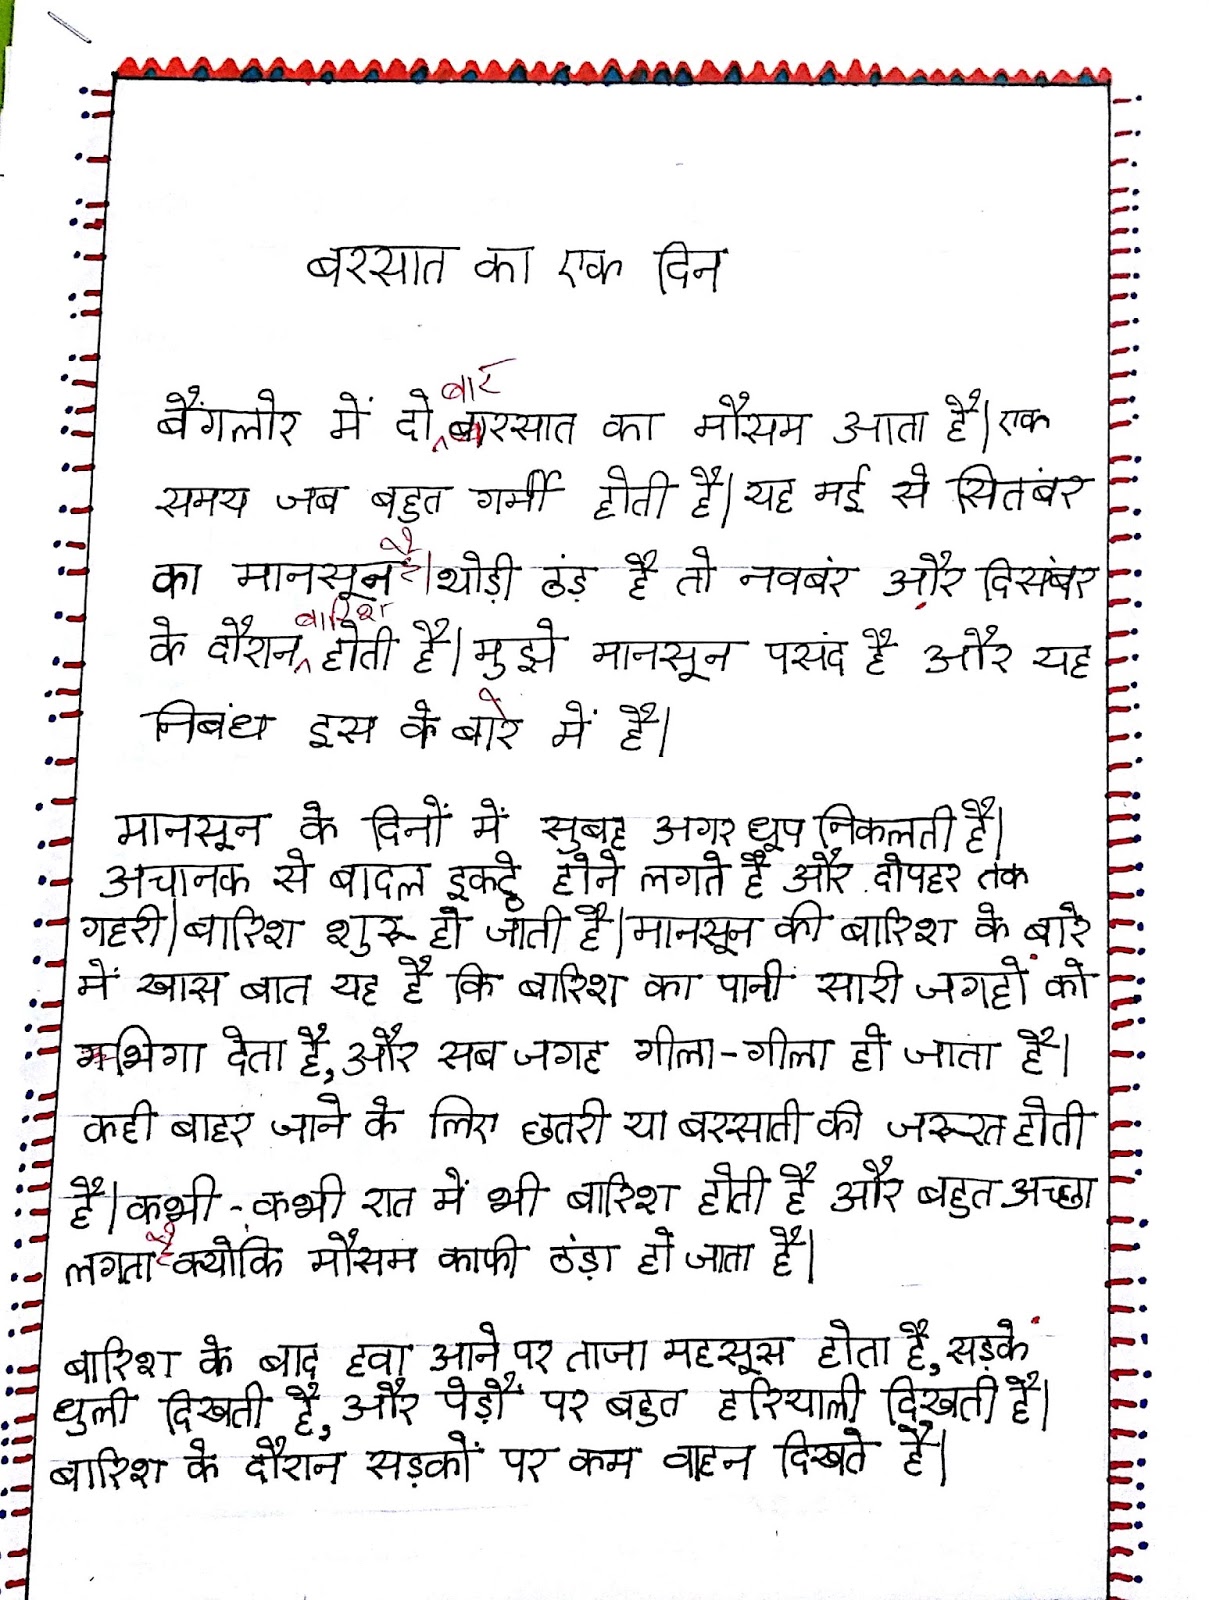 बरसात का एक दिन
बार
बैंगलोर में दो बरसात का मौसम आता है| एक
समय जब बहुत गर्मी होती है| यह मई से सितंबर
का मानसून है| थोड़ी ठंड़ है तो नवबंर और दिसंबर
बारिश
के दौरान होती है| मुझे मानसून पसंद है और यह
निबंध इस के बारे में है|
मानसून के दिनों में सुबह अगर धूप निकलती है|
अचानक से बादल इकट्ठे होने लगते है और दोपहर तक
गहरी| बारिश शुरू हो जाती है| मानसून की बारिश के बारे
में खास बात यह है कि बारिश का पानी सारी जगहों को
भिगा देता है, और सब जगह गीला-गीला हो जाता है|
कही बाहर जाने के लिए छतरी या बरसाती की जरूरत होती
है| कभी-कभी रात में भी बारिश होती है और बहुत अच्छा
लगता है क्योकि मौसम काफी ठंड़ा हो जाता है|
बारिश के बाद हवा आने पर ताजा महसूस होता है, सड़कें
धुली दिखती है, और पेड़ों पर बहुत हरियाली दिखती है|
बारिश के दौरान सड़कों पर कम वाहन दिखते है|